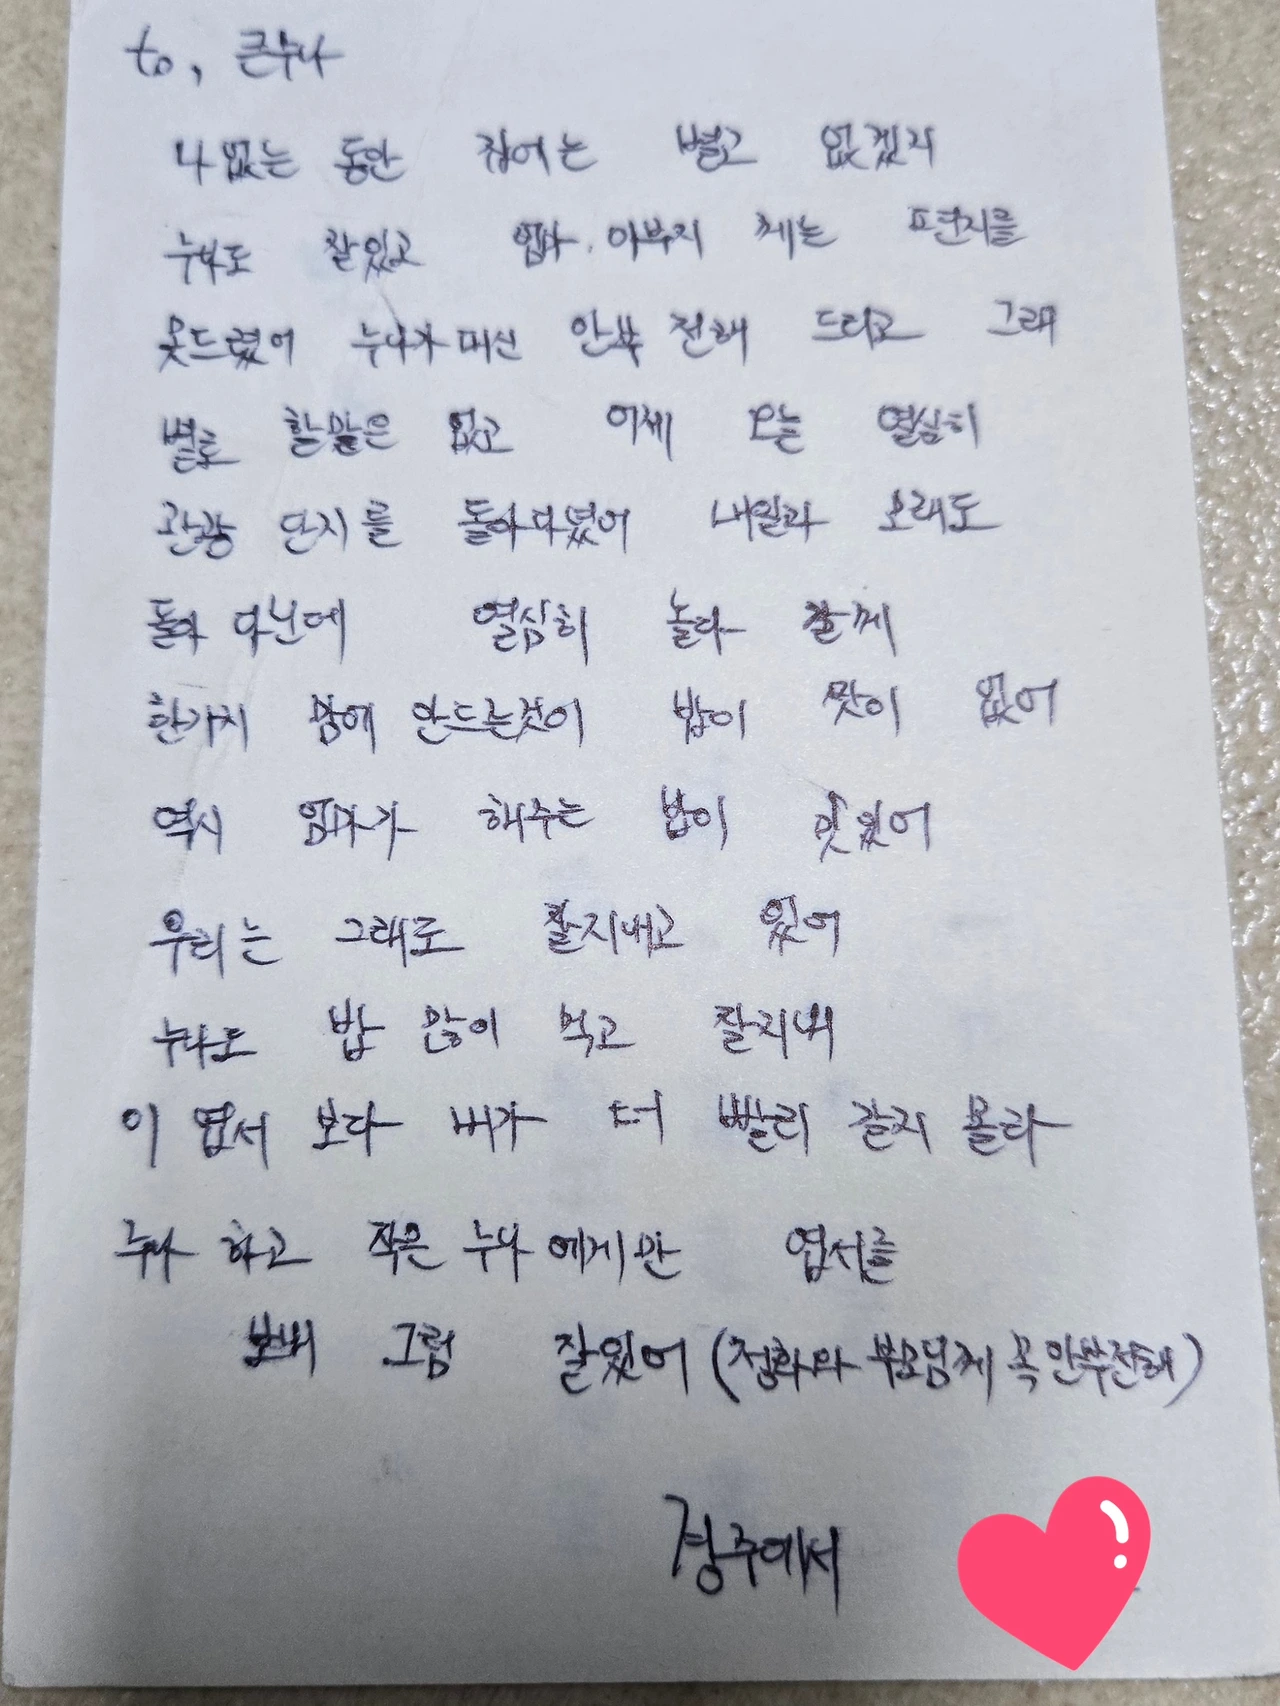 to, 큰누나
나 없는 동안 집에는 별고 없겠지
누나도 잘있고 엄마. 아부지 께는 편지를
못드렸어 누나가 대신 안부 전해 드리고 그래
별로 할말은 없고 어제 오늘 열심히
관광 단지를 돌아다녔어 내일과 모래도
돌아 다닌데 열심히 놀다 갈께
한가지 맘에 안드는것이 밥이 맛이 없어
역시 엄마가 해주는 밥이 맛있어
우리는 그래도 잘지내고 있어
누나도 밥 많이 먹고 잘지내
이 엽서 보다 내가 더 빨리 갈지 몰라
누나 하고 작은 누나 에게만 엽서를
보내 그럼 잘있어 (정화와 부모님께 꼭 안부전해)
경주에서